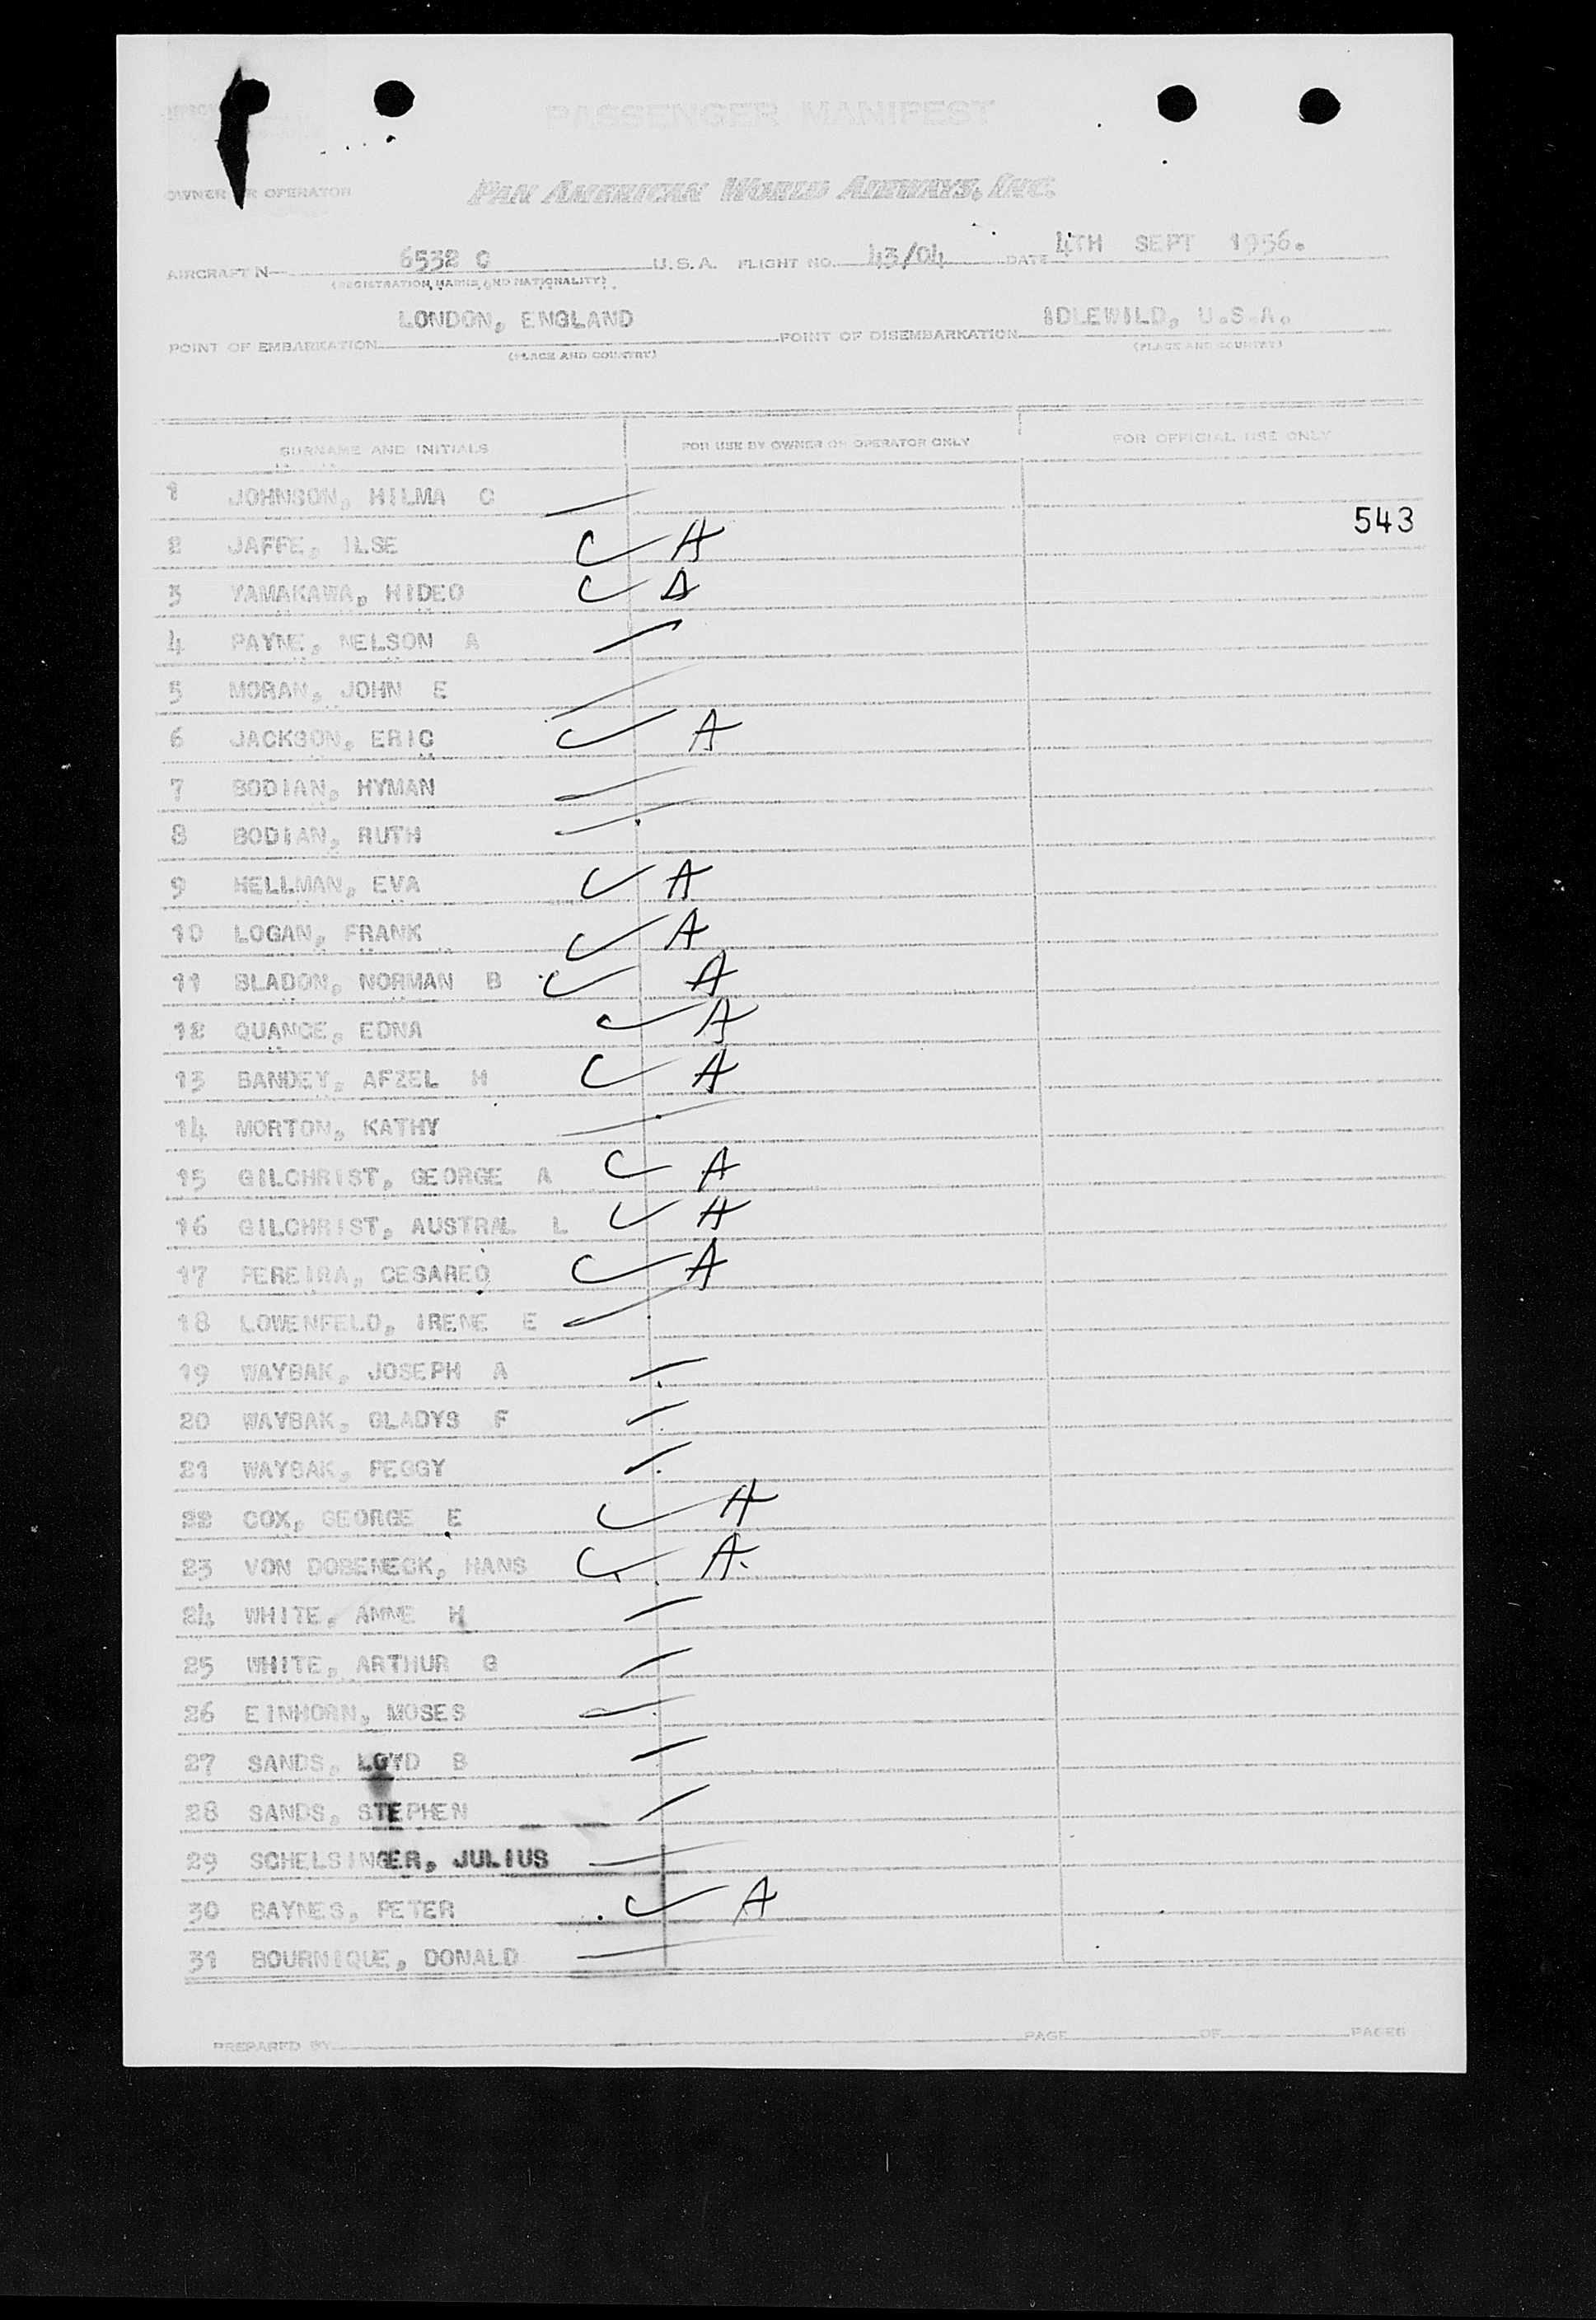 PASSENGER MANIFEST
OWNER OR OPERATOR PAN AMERICAN WORLD AIRWAYS, INC.
AIRCRAFT N 6532 C U.S.A. FLIGHT NO. 43/04 DATE 4TH SEPT 1956.
(REGISTRATION MARKS AND NATIONALITY)
POINT OF EMBARKATION LONDON, ENGLAND POINT OF DISEMBARKATION IDLEWILD, U.S.A.
(PLACE AND COUNTRY) (PLACE AND COUNTRY)
SURNAME AND INITIALS FOR USE BY OWNER OR OPERATOR ONLY FOR OFFICIAL USE ONLY
1 JOHNSON, HILMA C
543
2 JAFFE, ILSE A
3 YAMAKAWA, HIDEO A
4 PAYNE, NELSON A
5 MORAN, JOHN E
6 JACKSON, ERIC A
7 BODIAN, HYMAN
8 BODIAN, RUTH
9 HELLMAN, EVA A
10 LOGAN, FRANK A
11 BLADON, NORMAN B A
12 QUANCE, EDNA A
13 BANDEY, AFZEL H A
14 MORTON, KATHY
15 GILCHRIST, GEORGE A A
16 GILCHRIST, AUSTRAL L A
17 PEREIRA, CESAREO A
18 LOWENFELD, IRENE E
19 WAYBAK, JOSEPH A
20 WAYBAK, GLADYS F
21 WAYBAK, PEGGY
22 COX, GEORGE E A
23 VON DOBENECK, HANS A.
24 WHITE, ANNE H
25 WHITE, ARTHUR G
26 EINHORN, MOSES
27 SANDS, LOYD B
28 SANDS, STEPHEN
29 SCHELSINGER, JULIUS
30 BAYNES, PETER A
31 BOURNIQUE, DONALD
PREPARED BY PAGE OF PAGES